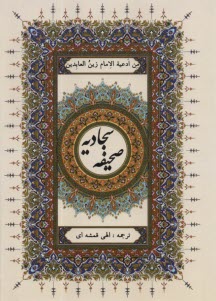 من أدعیة الإمام زین العابدین
صحیفه
سجادیه
ترجمه : الهی قمشه ای